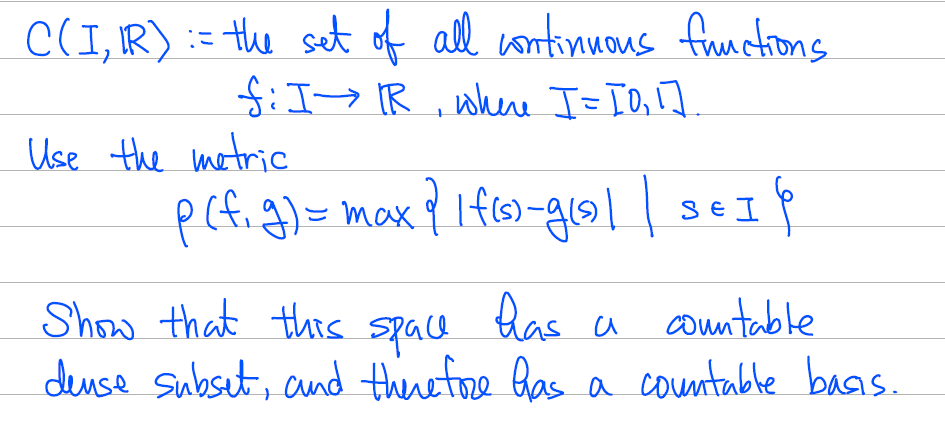 C(I, ℝ) := the set of all continuous functions
f: I → ℝ, where I = [0,1].
Use the metric
ρ(f, g) = max { |f(s) - g(s)| | s ∈ I }
Show that this space has a countable
dense subset, and therefore has a countable basis.